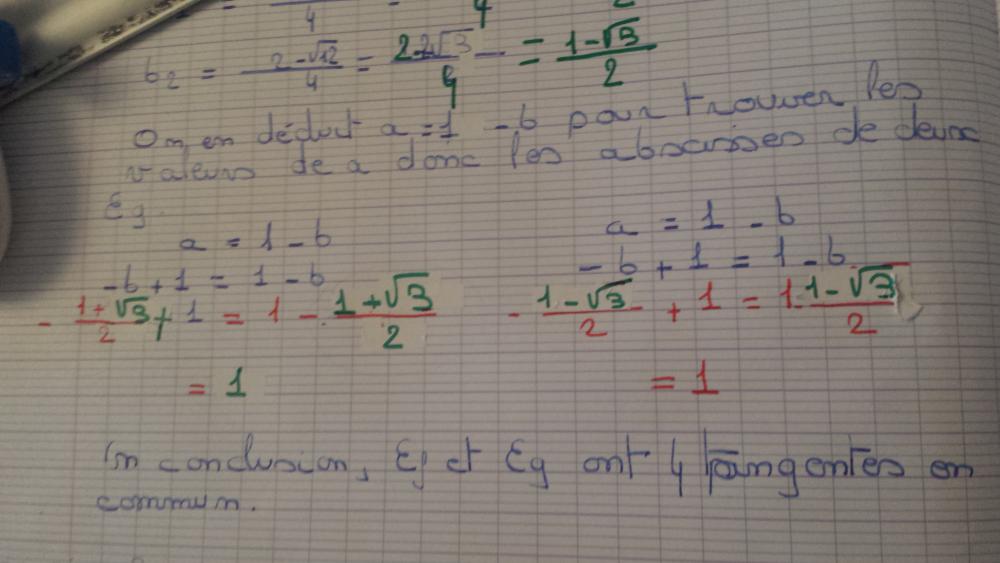 4 4 2
b₂ = (2-√12)/4 = (2-2√3)/4 = (1-√3)/2
On en déduit a = 1 - b pour trouver les
valeurs de a donc les abscisses de deux
Eg
a = 1 - b a = 1 - b
-b + 1 = 1 - b - b + 1 = 1 - b
- (1+√3)/2 + 1 = 1 - (1+√3)/2 - (1-√3)/2 + 1 = 1 - (1-√3)/2
= 1 = 1
In conclusion, Ef et Eg ont 4 tangentes en
commun.